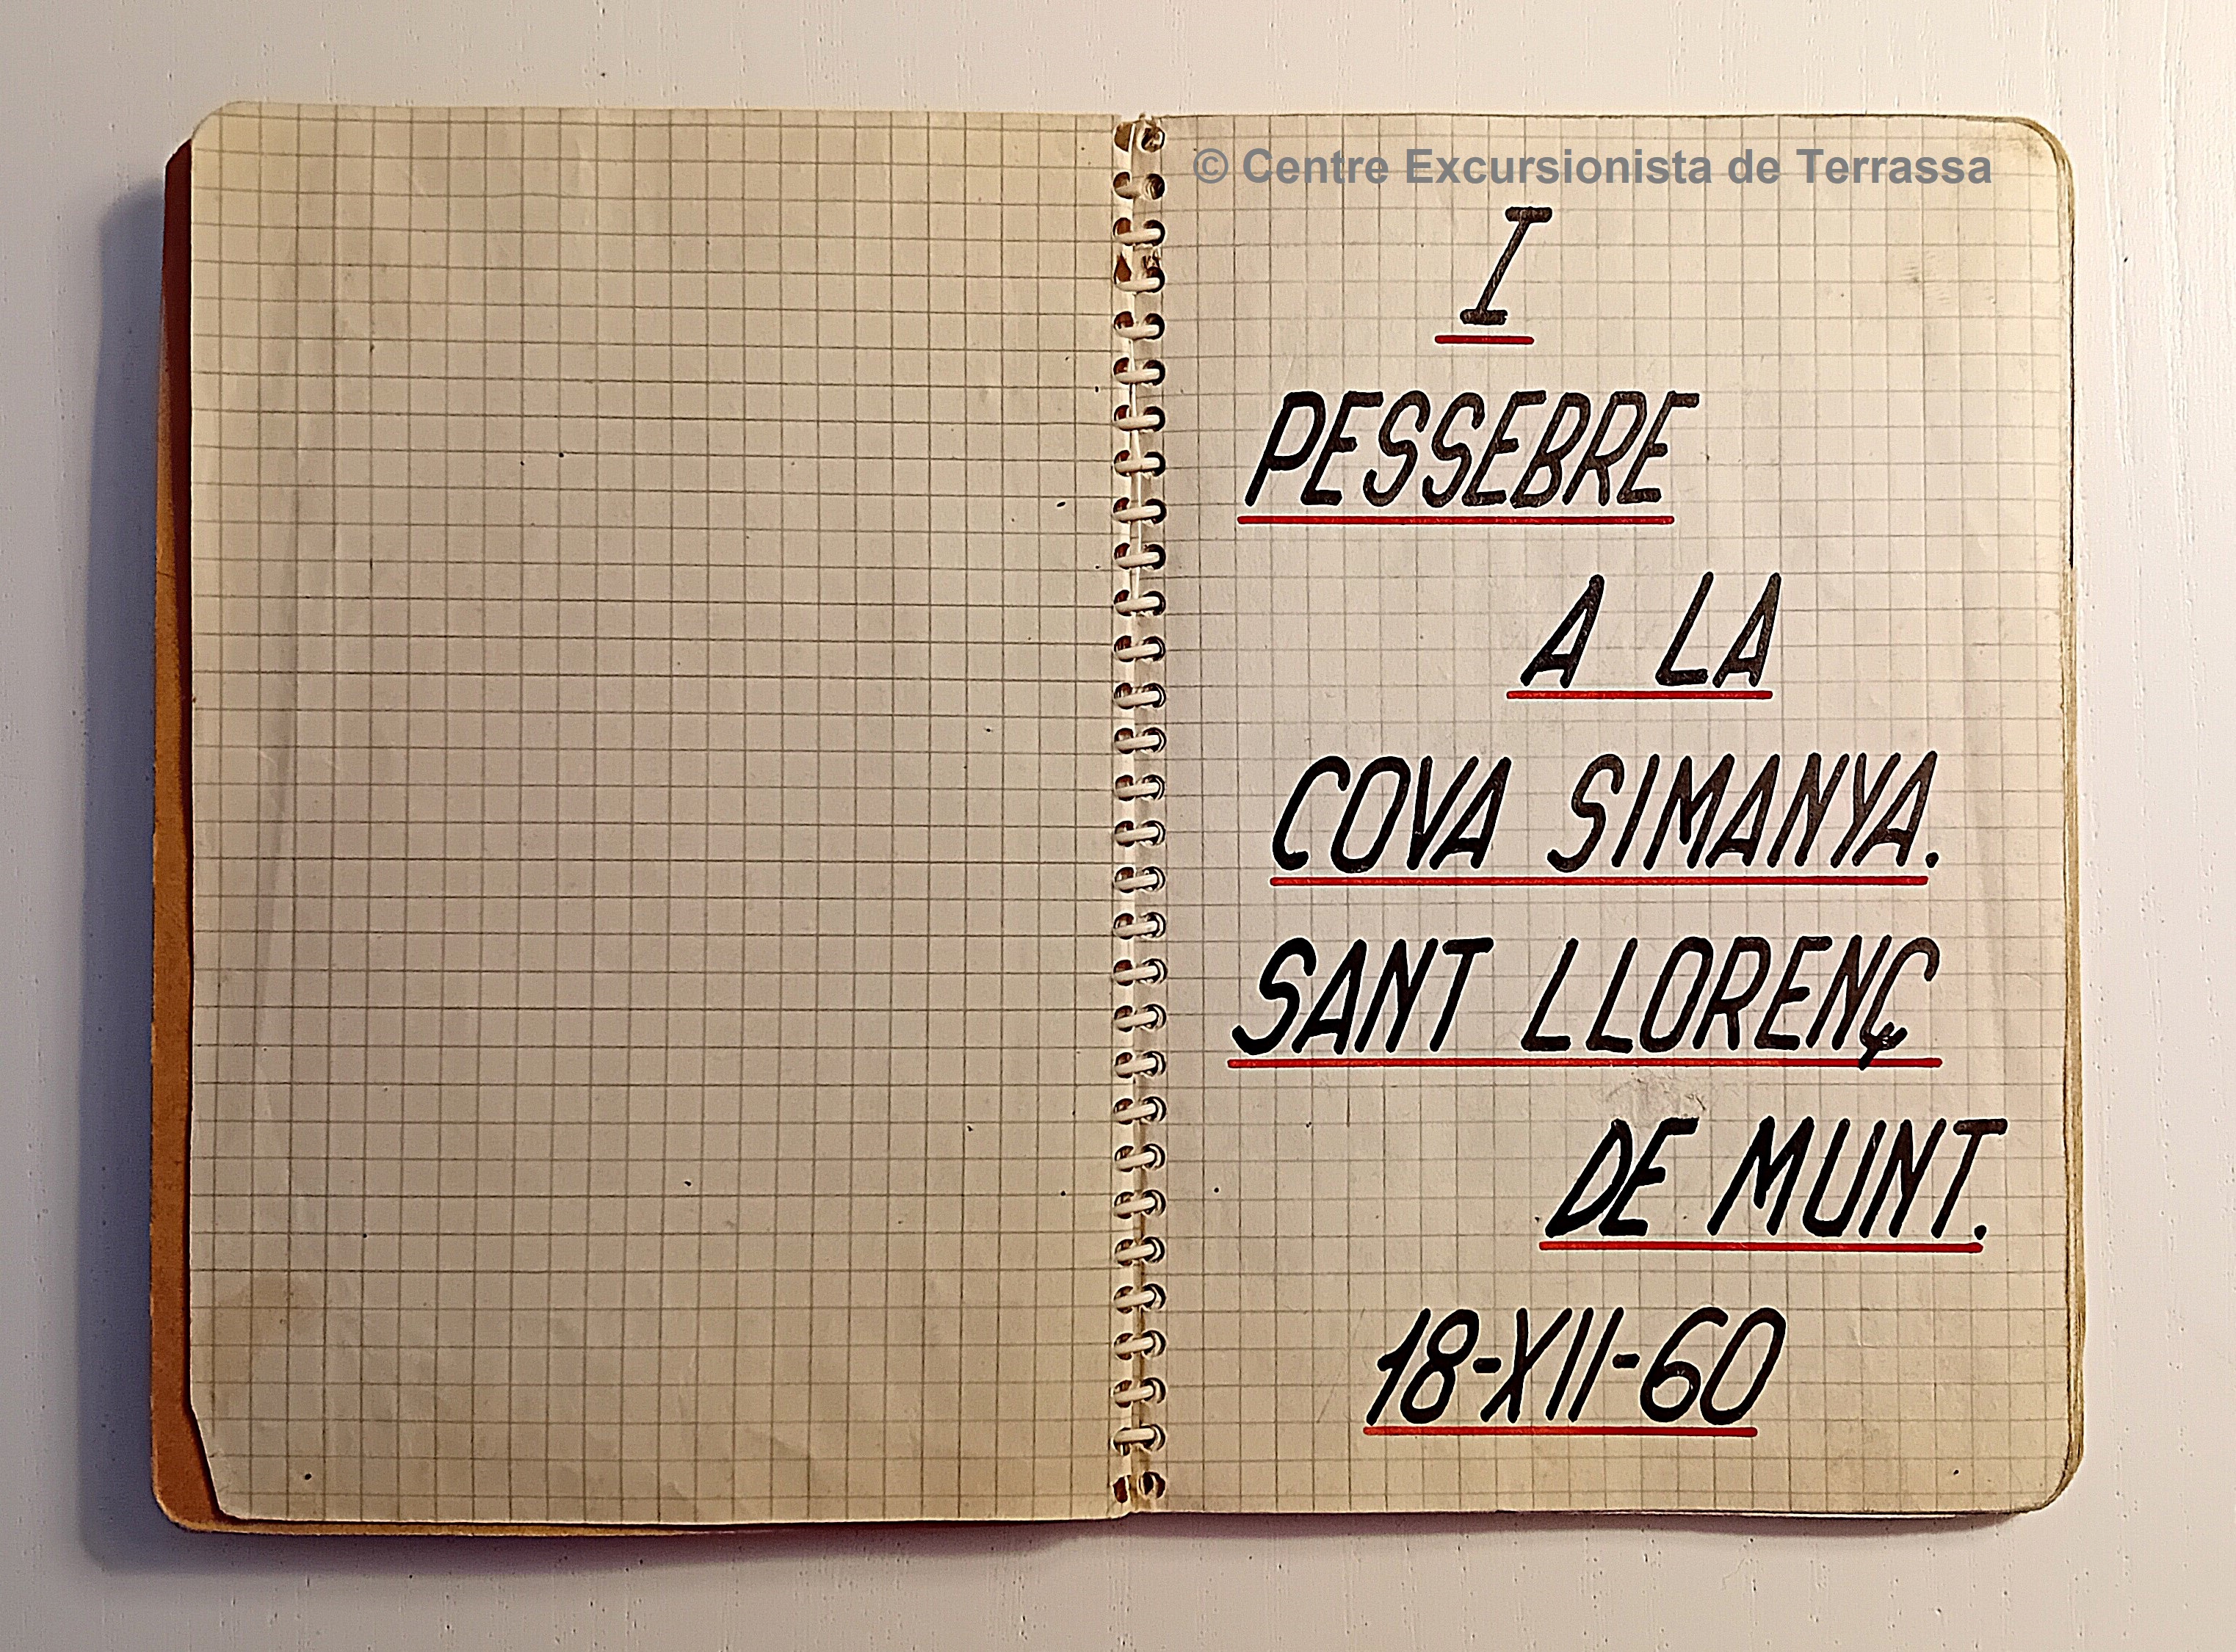 © Centre Excursionista de Terrassa
I
PESSEBRE
A LA
COVA SIMANYA.
SANT LLORENÇ
DE MUNT.
18-XII-60